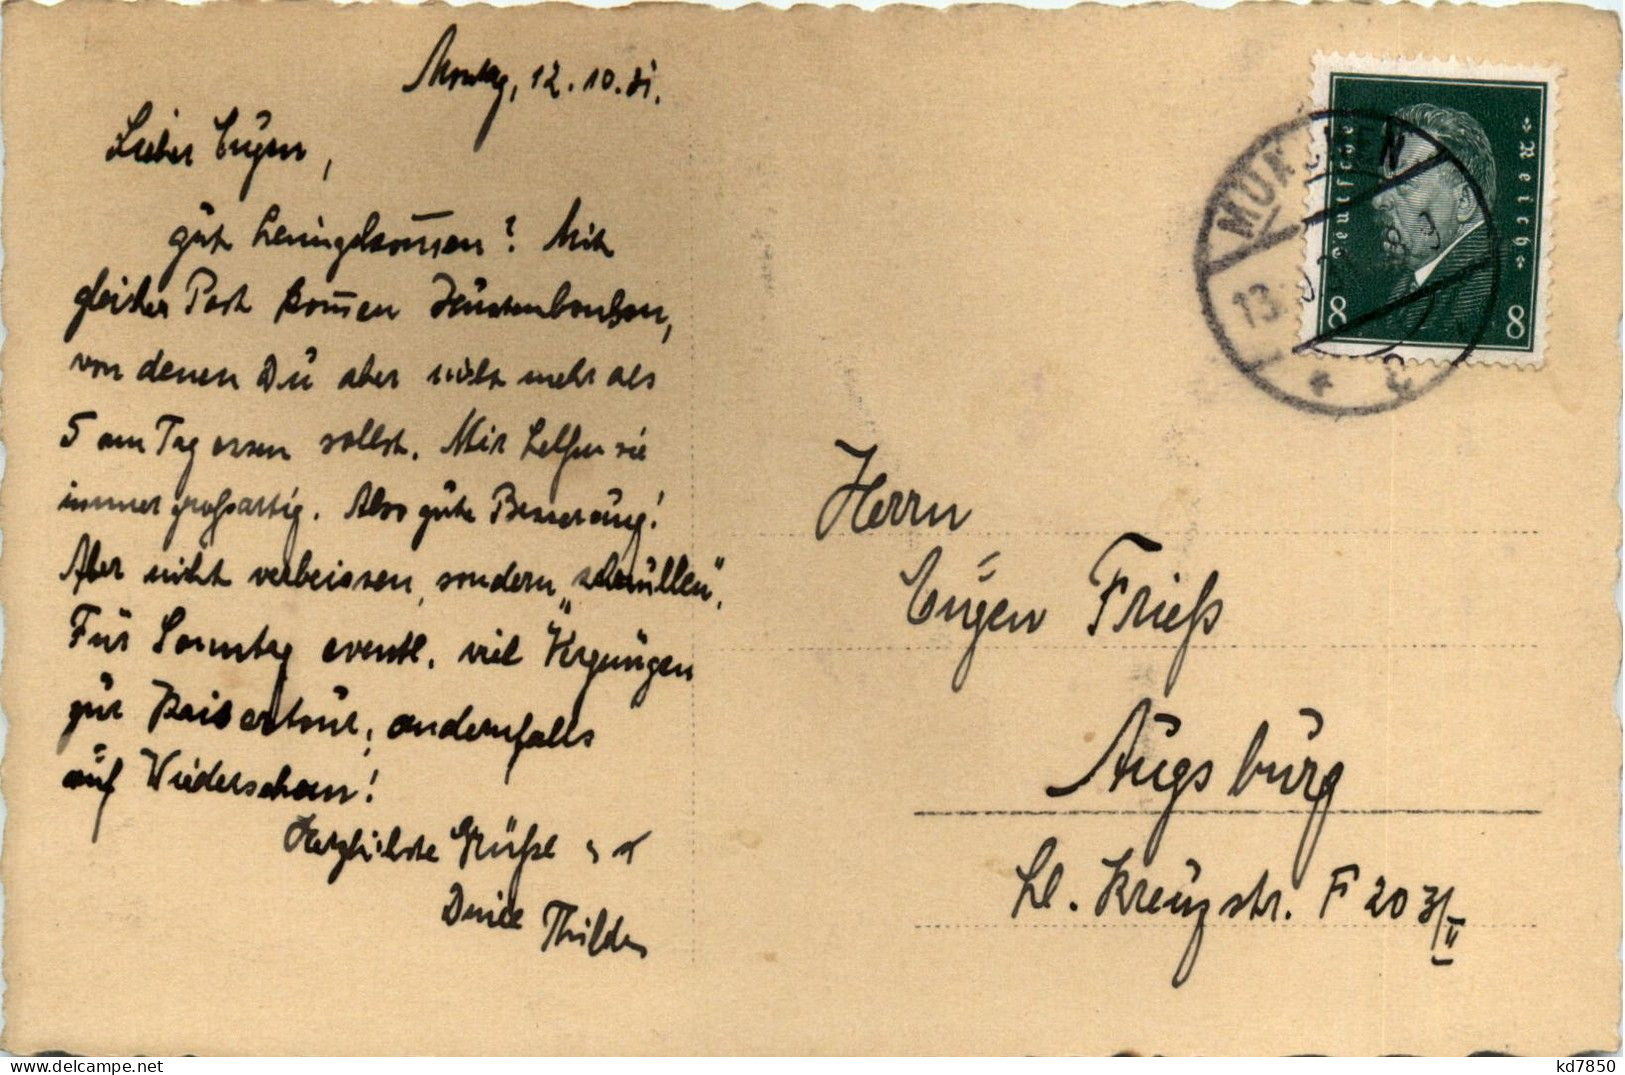 Montag, 12.10.31.
Lieber Eugen,
gut heimgekommen? Mit
gleicher Post kommen Hustenbonbon,
von denen Du aber nicht mehr als
5 am Tag essen sollst. Mir helfen sie
immer großartig. Also gute Besserung!
Aber nicht verbeissen, sondern „schnullen".
Für Sonntag eventl. viel Vergnügen
zur Kaisertour, andernfalls
auf Wiederschauen!
Herzlichste Grüße
Deine Thilde
Deutsches Reich
8 8
MÜNCHEN
13.
Herrn
Eugen Frieß
Augsburg
hl. Kreuzstr. F 203/II
kd7850